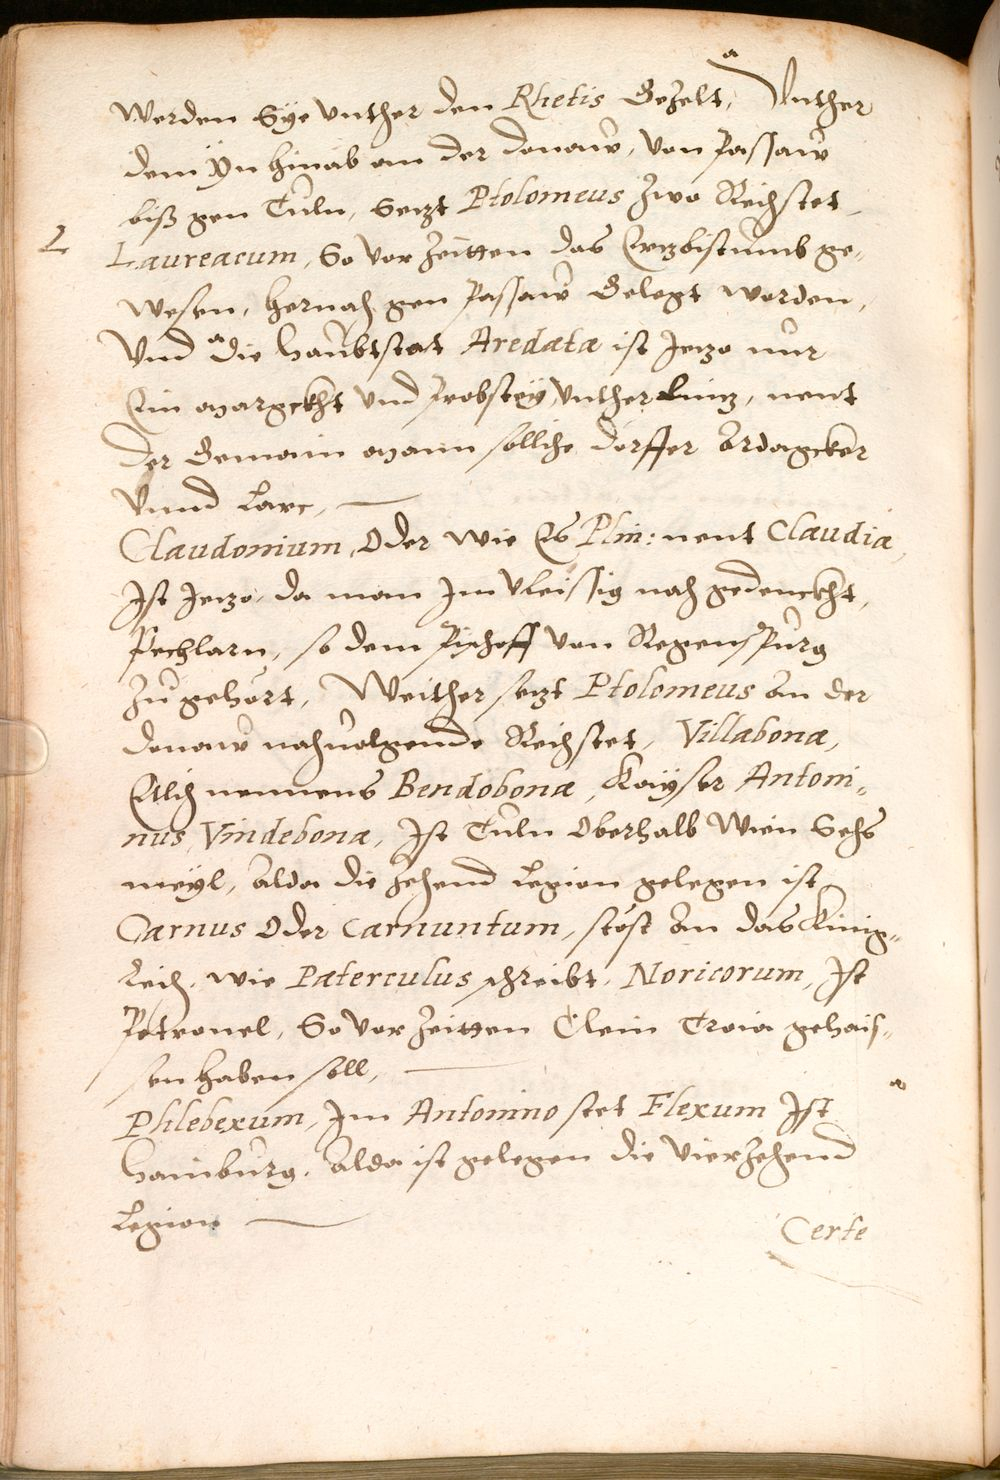 werden Sÿe vnther den Rhetis Gezelt, a Vnther
dem Yn hinab an der donaw, von Passaw
biß gen Tuln, Sezt Ptolomeus zwo Reichstet,
L
Laureacum, So vor Zeitten das Erzbistumb ge„
wesen, hernach gen Passaw Gelegt worden,
Vnd a die haubtstat Aredata ist Jezo nur
Ein Margckht Vnd Probsteÿ Vnther Linz, nent
Der Gemain Mann solliche dörffer Ardagcker
Vnnd Larc,
Claudonium, Oder wie Es Plin: nent Claudia,
Ist Jezo, da man Jm Vleissig nach gedenckht,
Pechlarn, so dem Pischoff von Regenspurg
Zu gehört, Weither sezt Ptolomeus an der
donaw nachuolgende Reichstet, Villabona,
Etlich nennens Bendobona, Kaÿser Antoni„
nus Vindebona, Ist Tuln Oberhalb Wien Sechs
meyl, alda die Zehend Legion gelegen ist
Carnus Oder Carnuntum, stöst an das Kinig„
Reich, wie Paterculus schreibt, Noricorum, Ist
Petronel, So vor Zeitten Clein Troia gehais„
sen haben soll,
Phlebexum, Jm Antonino stet Flexum Ist a
Hainburg, alda ist gelegen die Vierzehend
Legion
Certe